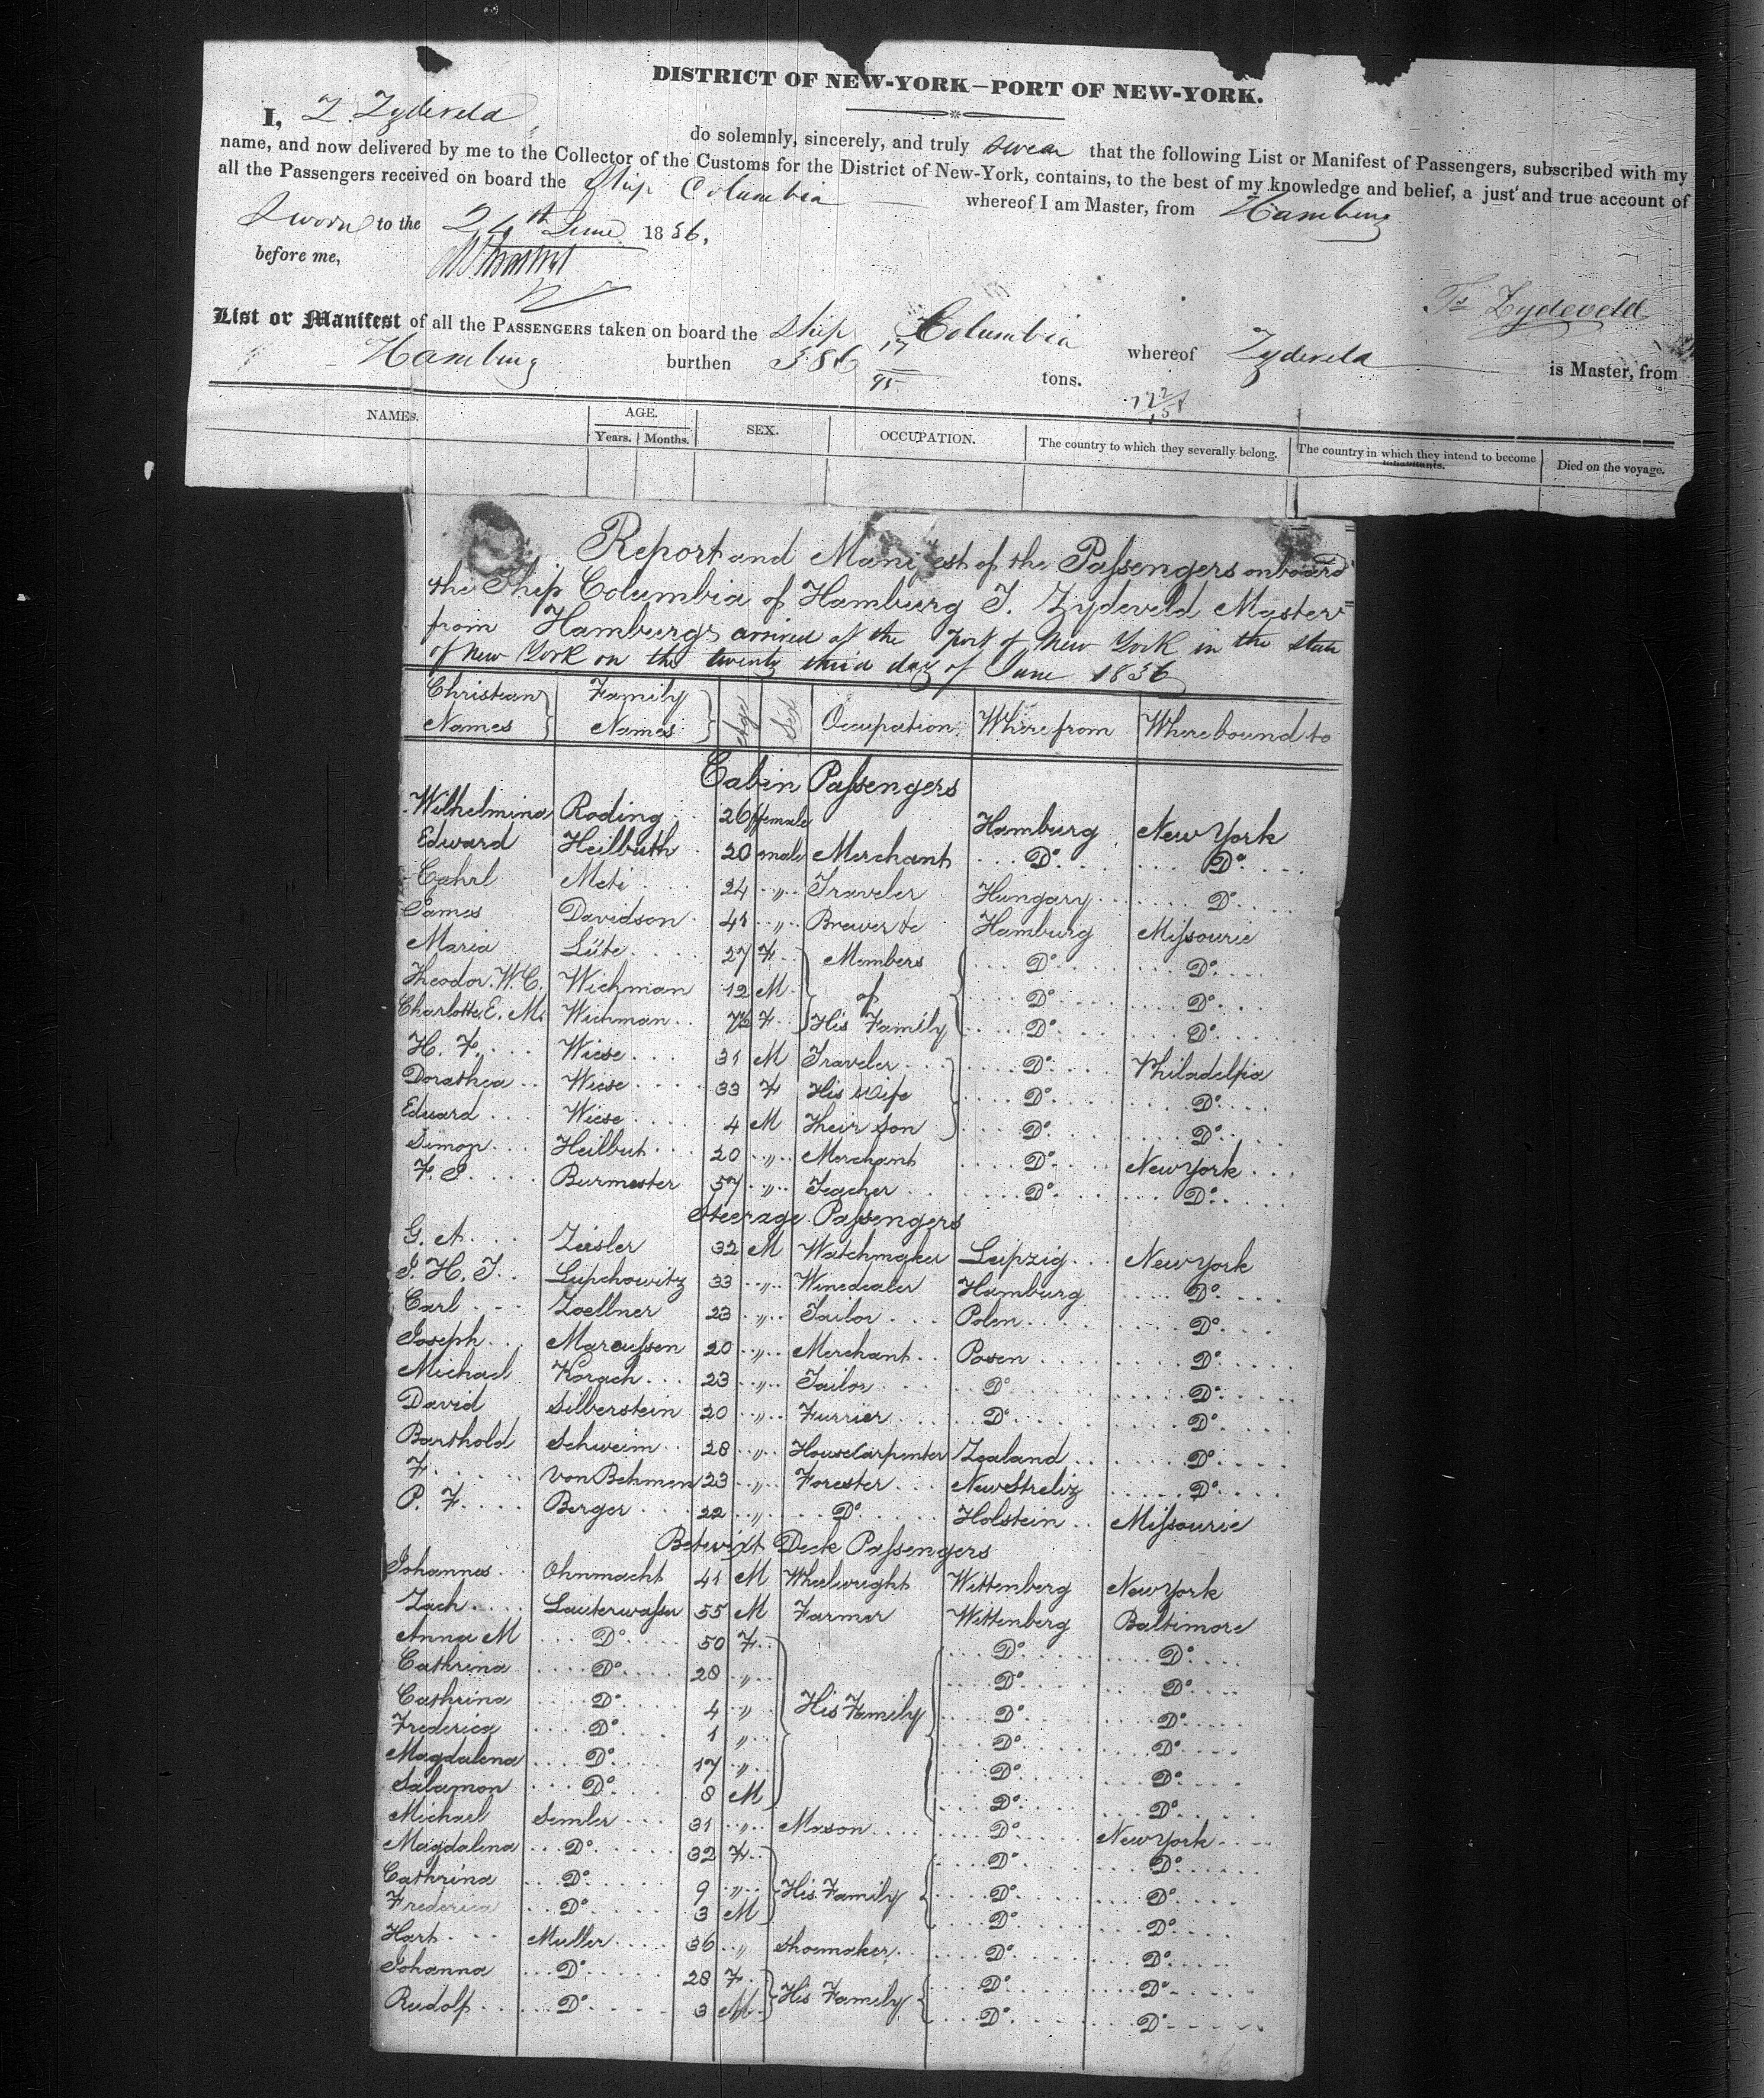 DISTRICT OF NEW-YORK—PORT OF NEW-YORK.
I, Zydeveld do solemnly, sincerely, and truly swear that the following List or Manifest of Passengers, subscribed with my
name, and now delivered by me to the Collector of the Customs for the District of New-York, contains, to the best of my knowledge and belief, a just and true account of
all the Passengers received on board the Ship Columbia whereof I am Master, from Hamburg
Sworn to the 24th June 1836,
before me,
Zydeveld
List or Manifest of all the PASSENGERS taken on board the Ship Columbia whereof Zydeveld is Master, from
Hamburg burthen 386 17/95 tons.
NAMES. AGE. SEX. OCCUPATION. The country to which they severally belong. The country in which they intend to become inhabitants. Died on the voyage.
Years. Months.
Report and Manifest of the Passengers onboard
the Ship Columbia of Hamburg J. Zydeveld Master
from Hamburg arrived at the port of New York in the state
of New York on the twenty third day of June 1836
Christian Names Family Names Age Sex Occupation Where from Where bound to
Cabin Passengers
Wilhelmina Roding 26 female Hamburg New York
Edward Heilbuth 20 male Merchant Do Do
Cahrl Meti 24 " Traveler Hungary Do
James Davidson 41 " Brewer &c Hamburg Missourie
Maria Lüte 27 F Members Do Do
Theodor. W. C. Wichman 12 M of Do Do
Charlotte. E. M. Wichman 7½ F His Family Do Do
H. F. Wiese 31 M Traveler Do Philadelfia
Dorathea Wiese 33 F His Wife Do Do
Eduard Wiese 4 M Their Son Do Do
Simon Heilbut 20 " Merchant Do New York
F. J. Burmester 57 " Teacher Do Do
Steerage Passengers
G. A. Zeisler 32 M Watchmaker Leipzig New York
J. H. J. Lupchowitz 33 " Winedealer Hamburg Do
Carl Zoellner 23 " Tailor Polen Do
Joseph Marcussen 20 " Merchant Posen Do
Michael Korach 23 " Tailor Do Do
David Silberstein 20 " Furrier Do Do
Barthold Schweim 28 " HouseCarpenter Zealand Do
F. von Behmen 23 " Forester New Streliz Do
P. F. Berger 22 " Do Holstein Missourie
Betwixt Deck Passengers
Johannes Ohnmacht 41 M Wheelwright Wittenberg New York
Zach Lauterwasser 55 M Farmer Wittenberg Baltimore
Anna M Do 50 F Do Do
Cathrina Do 28 " Do Do
Cathrina Do 4 " His Family Do Do
Frederica Do 1 " Do Do
Magdalena Do 17 " Do Do
Salamon Do 8 M Do Do
Michael Semler 31 " Mason Do New York
Magdalena Do 32 F Do Do
Cathrina Do 9 " His Family Do Do
Frederica Do 3 M Do Do
Hart Muller 36 " Shoemaker Do Do
Johanna Do 28 F His Family Do Do
Rudolf Do 3 M Do Do